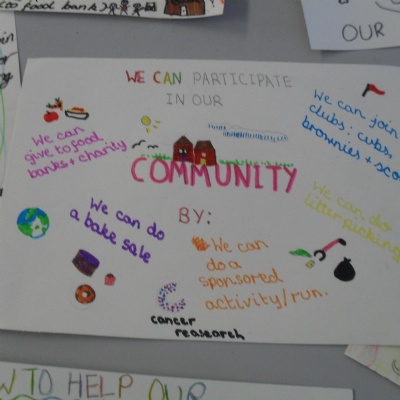 to food banks
OUR
WE CAN PARTICIPATE
IN OUR
We can
give to food
banks + charity
We can join
clubs: cubs,
brownies + sco
COMMUNITY
We can do
litter picking
BY:
We can do
a bake sale
We can
do a
sponsored
activity/run.
cancer
reasearch
W TO HELP OUR